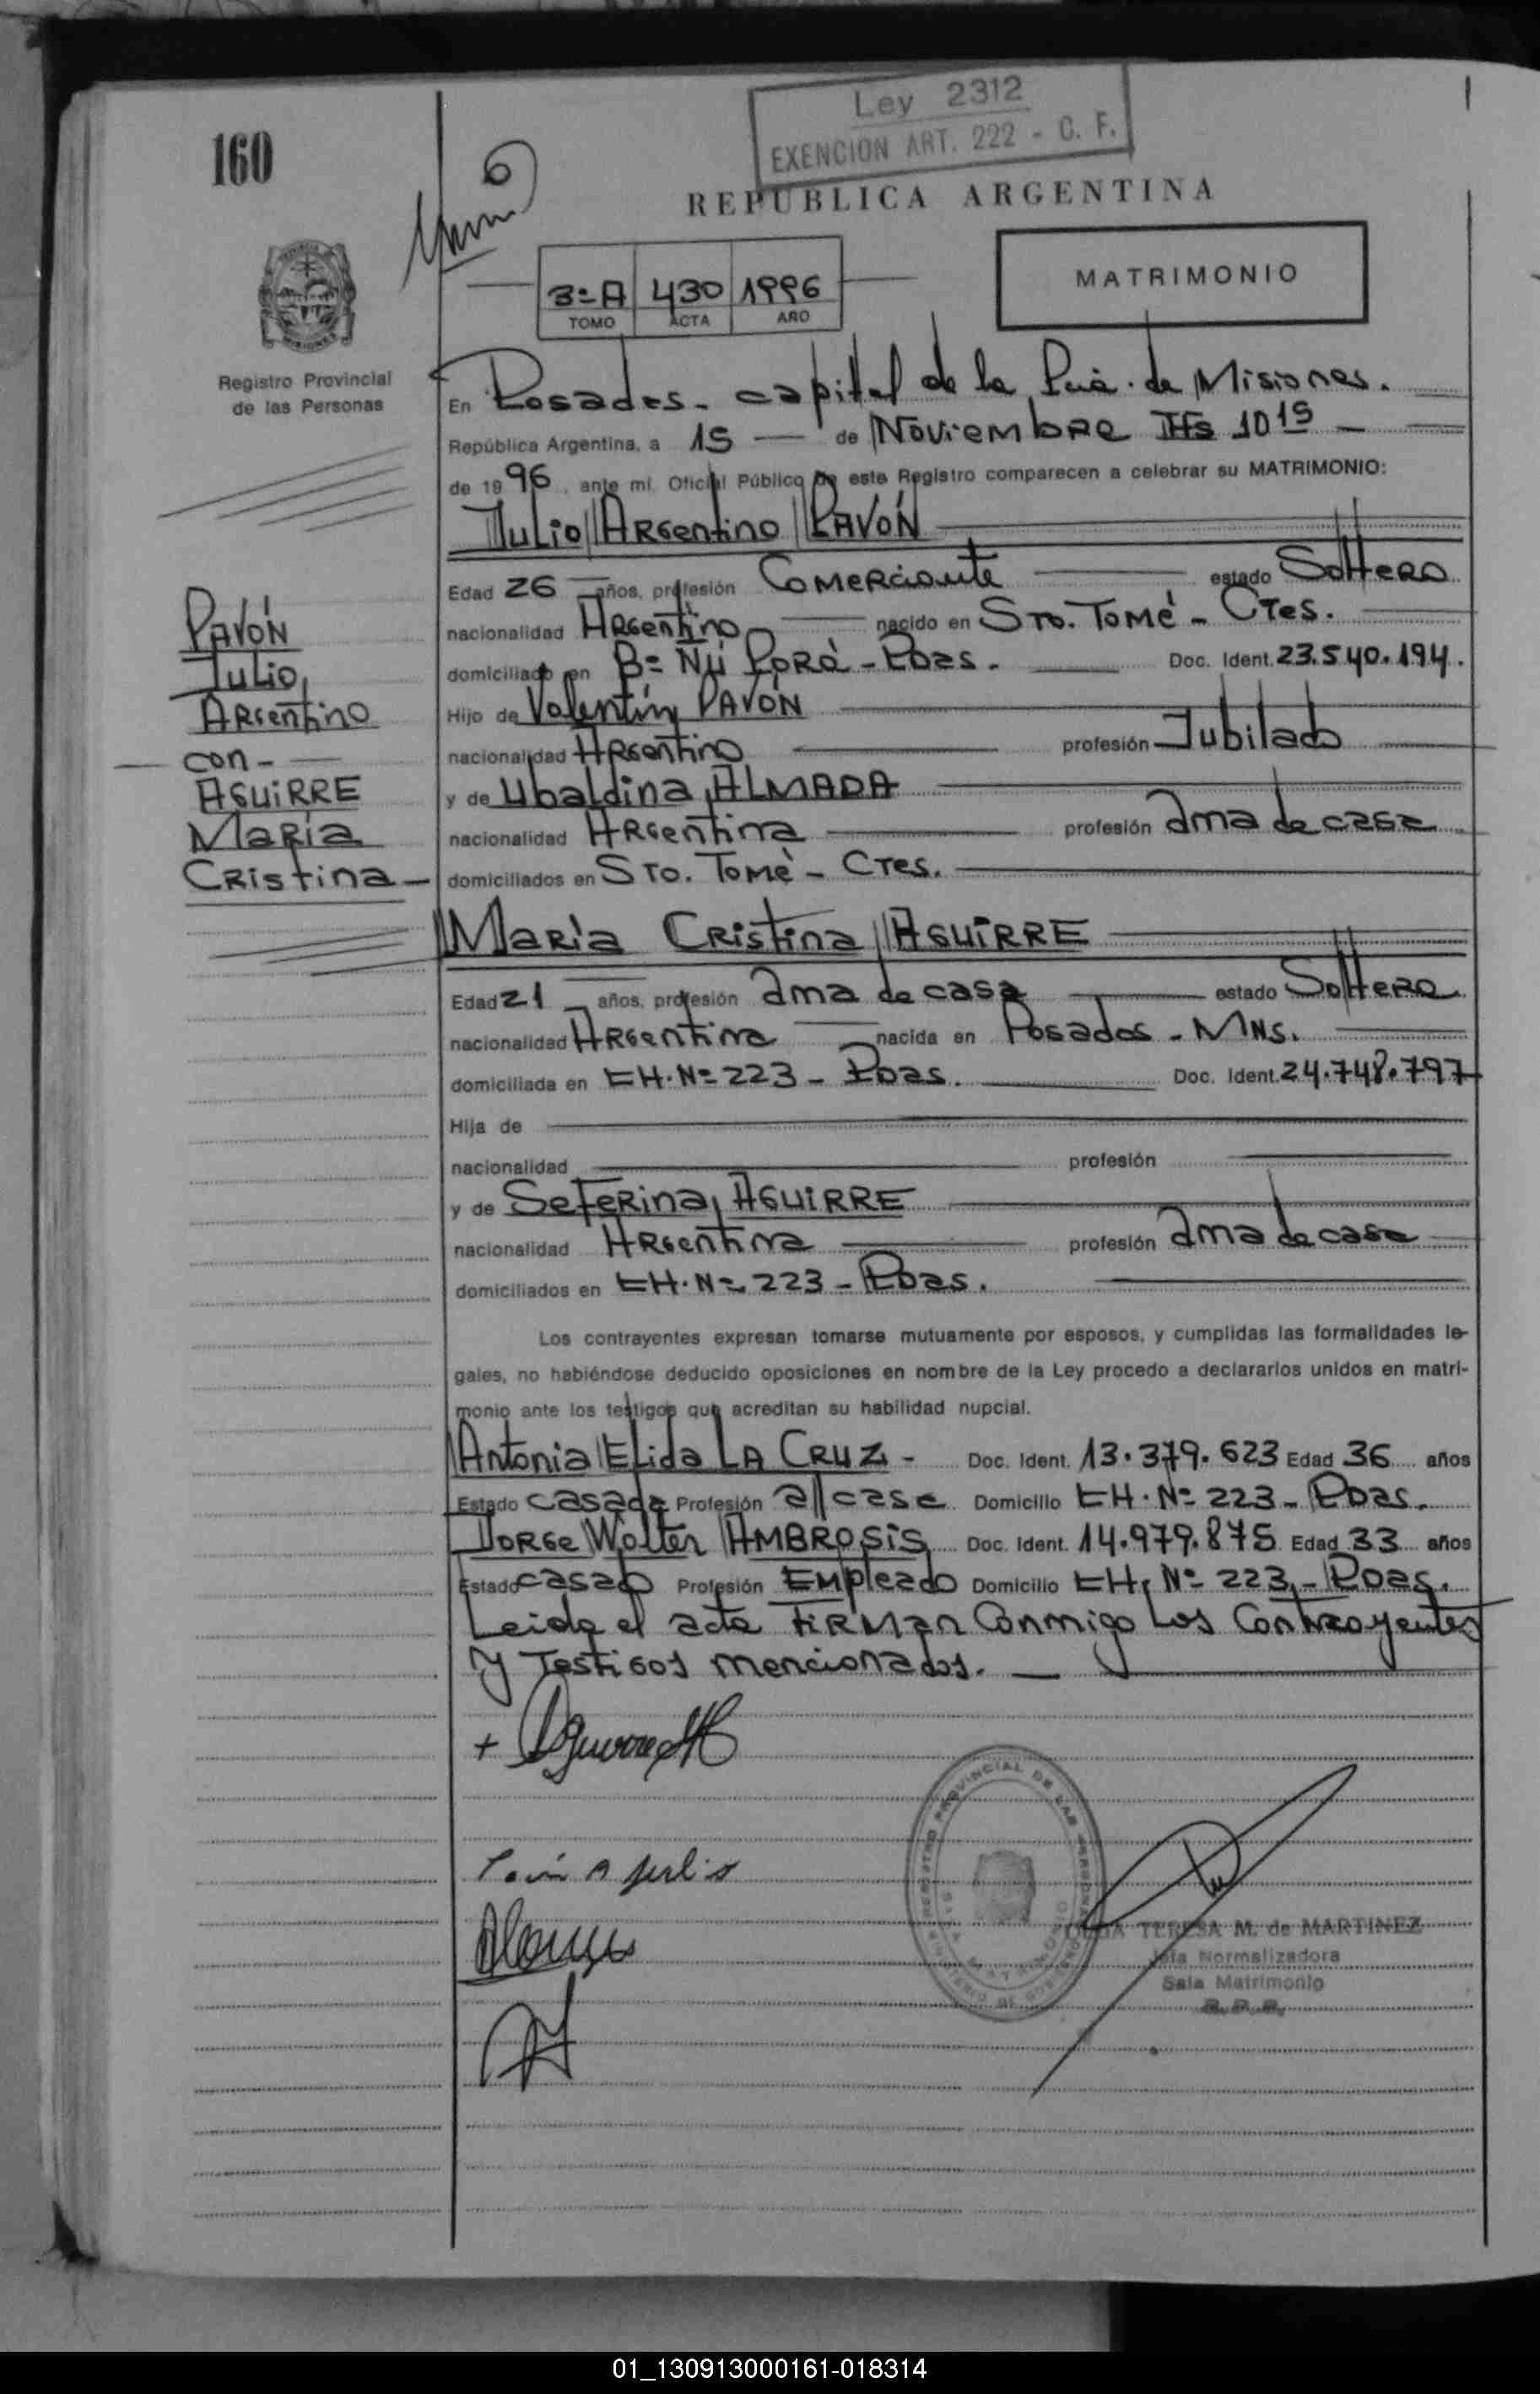 Ley 2312
EXENCION ART. 222 - C. F.
160
REPUBLICA ARGENTINA
MATRIMONIO
3=A 430 1996
TOMO ACTA AÑO
Registro Provincial
de las Personas
En Posadas - capital de la Pcia. de Misiones.
República Argentina, a 15 — de Noviembre Hs 10 15 —
de 1996, ante mí, Oficial Público de este Registro comparecen a celebrar su MATRIMONIO:
Julio Argentino PAVÓN
Edad 26 años, profesión Comerciante estado Soltero
nacionalidad Argentino nacido en Sto. Tomé - Ctes.
domiciliado en B= Ñú Porá - Pdas. Doc. Ident. 23.540.194.
Hijo de Valentín PAVÓN
nacionalidad Argentino profesión Jubilado
y de Ubaldina ALMADA
nacionalidad Argentina profesión ama de casa
domiciliados en Sto. Tomé - Ctes.
PAVÓN
Julio
Argentino
con -
AGUIRRE
María
Cristina -
María Cristina AGUIRRE
Edad 21 años, profesión ama de casa estado Soltera
nacionalidad Argentina nacida en Posadas - Mns.
domiciliada en CH. Nº 223 - Pdas. Doc. Ident. 24.748.797
Hija de
nacionalidad profesión
y de Seferina AGUIRRE
nacionalidad Argentina profesión ama de casa
domiciliados en CH. Nº 223 - Pdas.
Los contrayentes expresan tomarse mutuamente por esposos, y cumplidas las formalidades le-
gales, no habiéndose deducido oposiciones en nombre de la Ley procedo a declararlos unidos en matri-
monio ante los testigos que acreditan su habilidad nupcial.
Antonia Elida LA CRUZ - Doc. Ident. 13.379.623 Edad 36 años
Estado casada Profesión a/case Domicilio CH. Nº 223 - Pdas.
Jorge Walter AMBROSIS Doc. Ident. 14.979.875 Edad 33 años
Estado casado Profesión Empleado Domicilio CH. Nº 223 - Pdas.
Leida el acta firman conmigo los contrayentes
y testigos mencionados. —
+ Aguirre MC
Pavón A Julio
REGISTRO PROVINCIAL DE LAS PERSONAS
SALA MATRIMONIO
OLGA TERESA M. de MARTINEZ
Jefa Normalizadora
Sala Matrimonio
R. P. P.
01_130913000161-018314